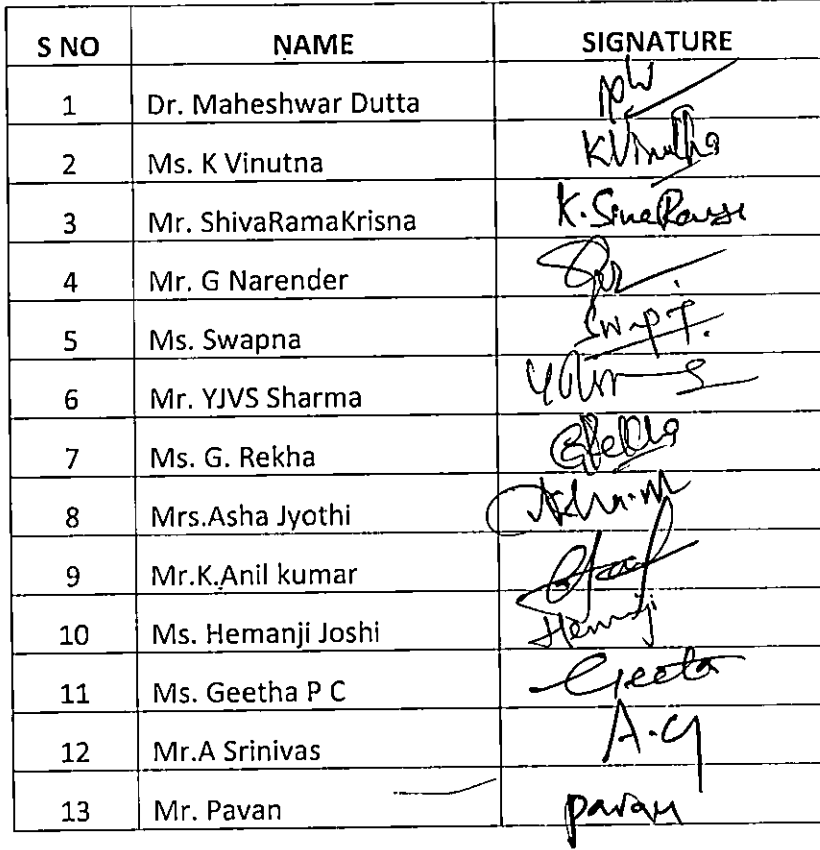 S NO NAME SIGNATURE
1 Dr. Maheshwar Dutta
2 Ms. K Vinutna KVinutha
3 Mr. ShivaRamaKrisna
4 Mr. G Narender
5 Ms. Swapna
6 Mr. YJVS Sharma
7 Ms. G. Rekha GRekha
8 Mrs.Asha Jyothi
9 Mr.K.Anil kumar
10 Ms. Hemanji Joshi Hemanji
11 Ms. Geetha P C Geeta
12 Mr.A Srinivas
13 Mr. Pavan pavan